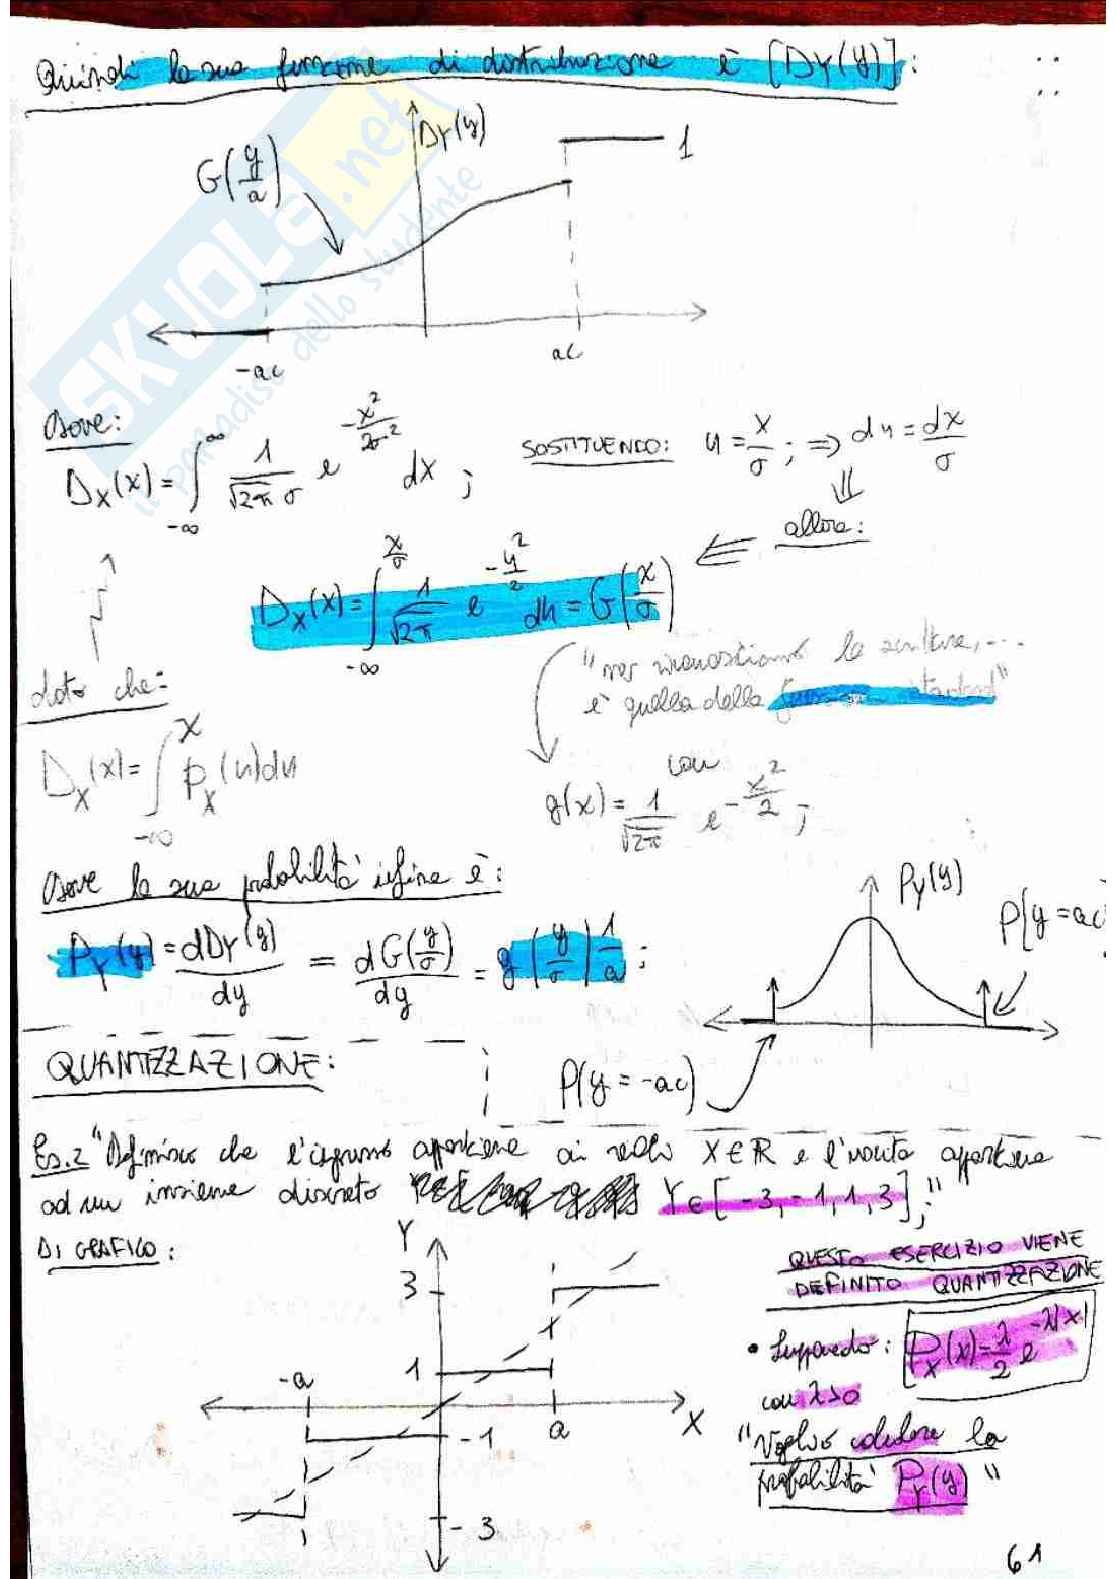 Quindi la sua funzione di distribuzione è [D_Y(y)]:
D_Y(y)
G(y/a)
1
-ac
ac
SKUOLA.net
il paradiso dello studente
Dove:
D_X(x) = ∫_{-∞}^{∞} 1/(√2π σ) e^{-x²/2σ²} dx ;
SOSTITUENDO: u = x/σ ; ⇒ du = dx/σ
⇓
allora:
⇐
D_X(x) = ∫_{-∞}^{x/σ} 1/√2π e^{-u²/2} du = G(x/σ)
"noi riconosciamo la scrittura, ...
è quella della standard"
dato che:
D_X(x) = ∫_{-∞}^{x} p_X(u)du
con
g(x) = 1/√2π e^{-x²/2} ;
Dove la sua probabilità infine è:
P_Y(y) = dD_Y(y)/dy = dG(y/σ)/dy = g(y/σ) 1/a ;
P_Y(y)
P(y = ac)
P(y = -ac)
QUANTIZZAZIONE:
Es.2 "Definisco che l'ingresso appartiene ai reali X ∈ ℝ e l'uscita appartiene
ad un insieme discreto Y ∈ [-3, -1, 1, 3] ;"
DI GRAFICO:
Y
3
1
-a
a
X
-1
-3
QUESTO ESERCIZIO VIENE
DEFINITO QUANTIZZAZIONE
• Supponendo: P_X(x) = λ/2 e^{-λ|x|}
con λ>0
"Voglio calcolare la
probabilità P_Y(y)"
61